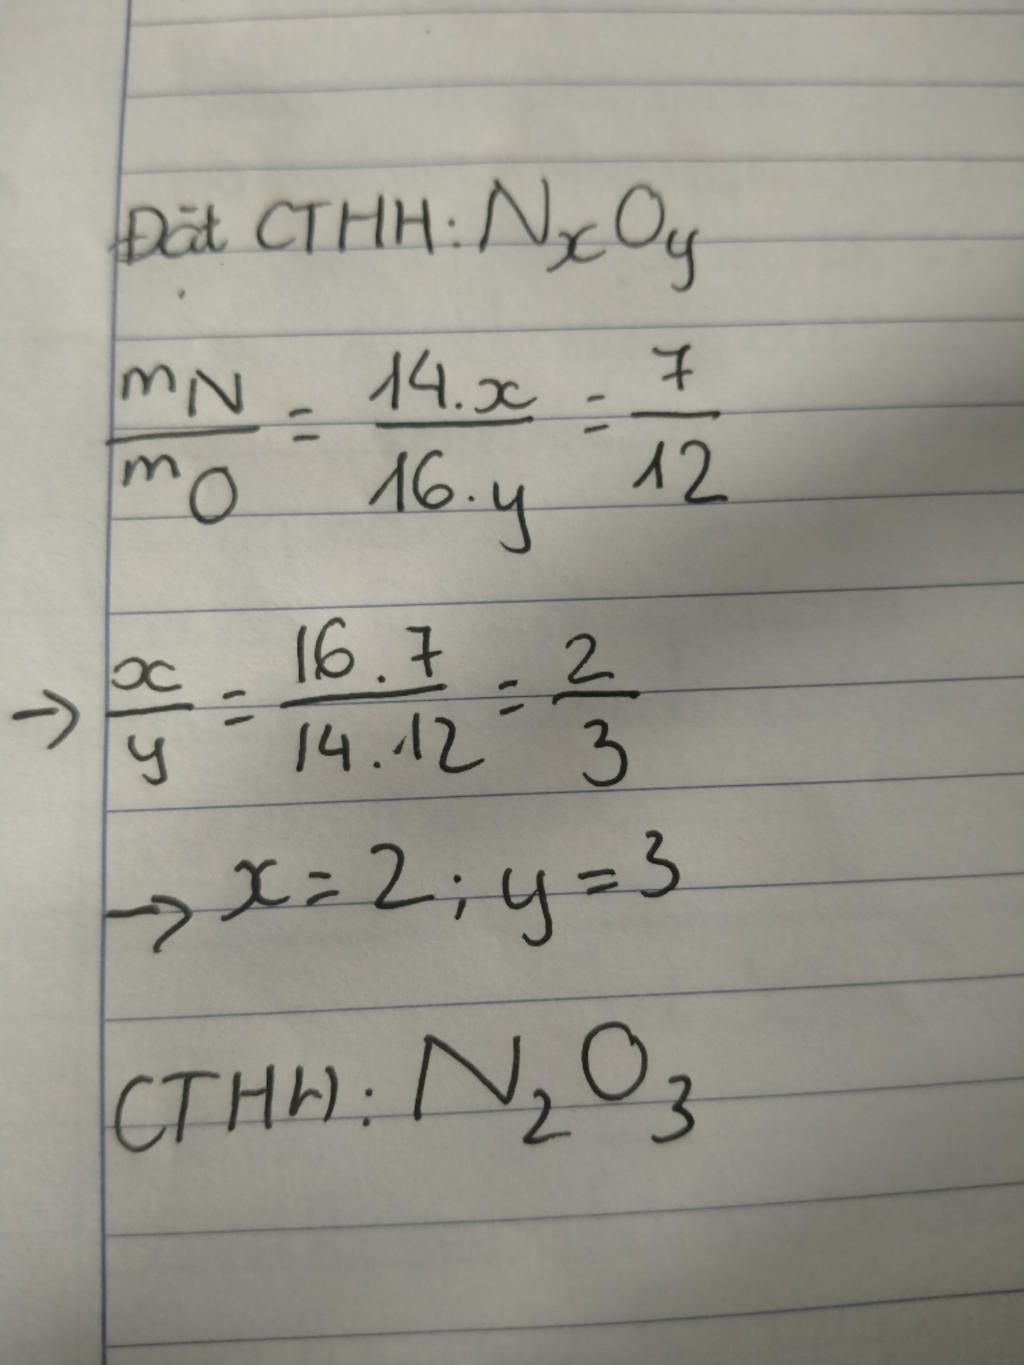 Đặt CTHH: NxOy
mN/mO = 14.x/16.y = 7/12
→ x/y = 16.7/14.12 = 2/3
→ x = 2; y = 3
CTHH: N2O3